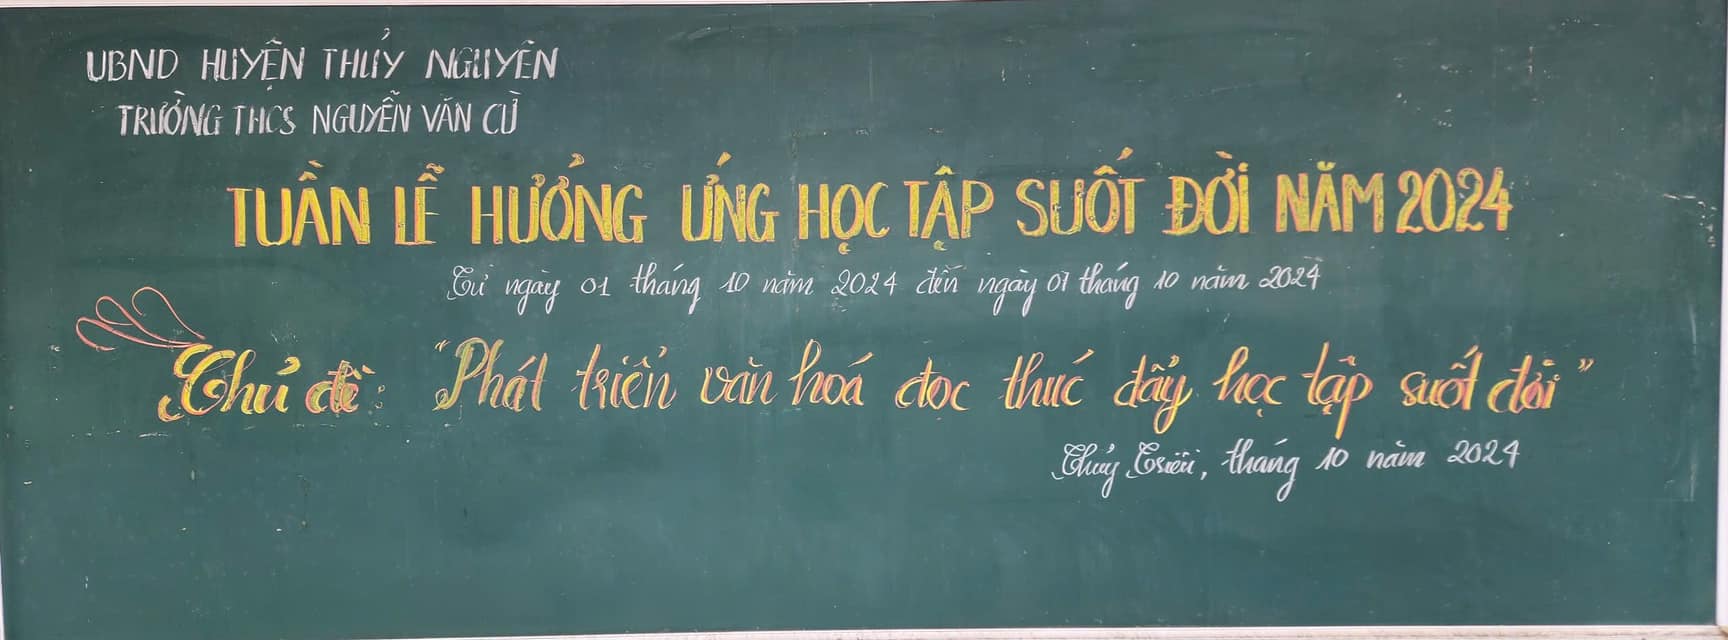 UBND HUYỆN THỦY NGUYÊN
TRƯỜNG THCS NGUYỄN VĂN CỪ
TUẦN LỄ HƯỞNG ỨNG HỌC TẬP SUỐT ĐỜI NĂM 2024
Từ ngày 01 tháng 10 năm 2024 đến ngày 07 tháng 10 năm 2024
Chủ đề: "Phát triển văn hoá đọc thúc đẩy học tập suốt đời"
Thủy Triều, tháng 10 năm 2024